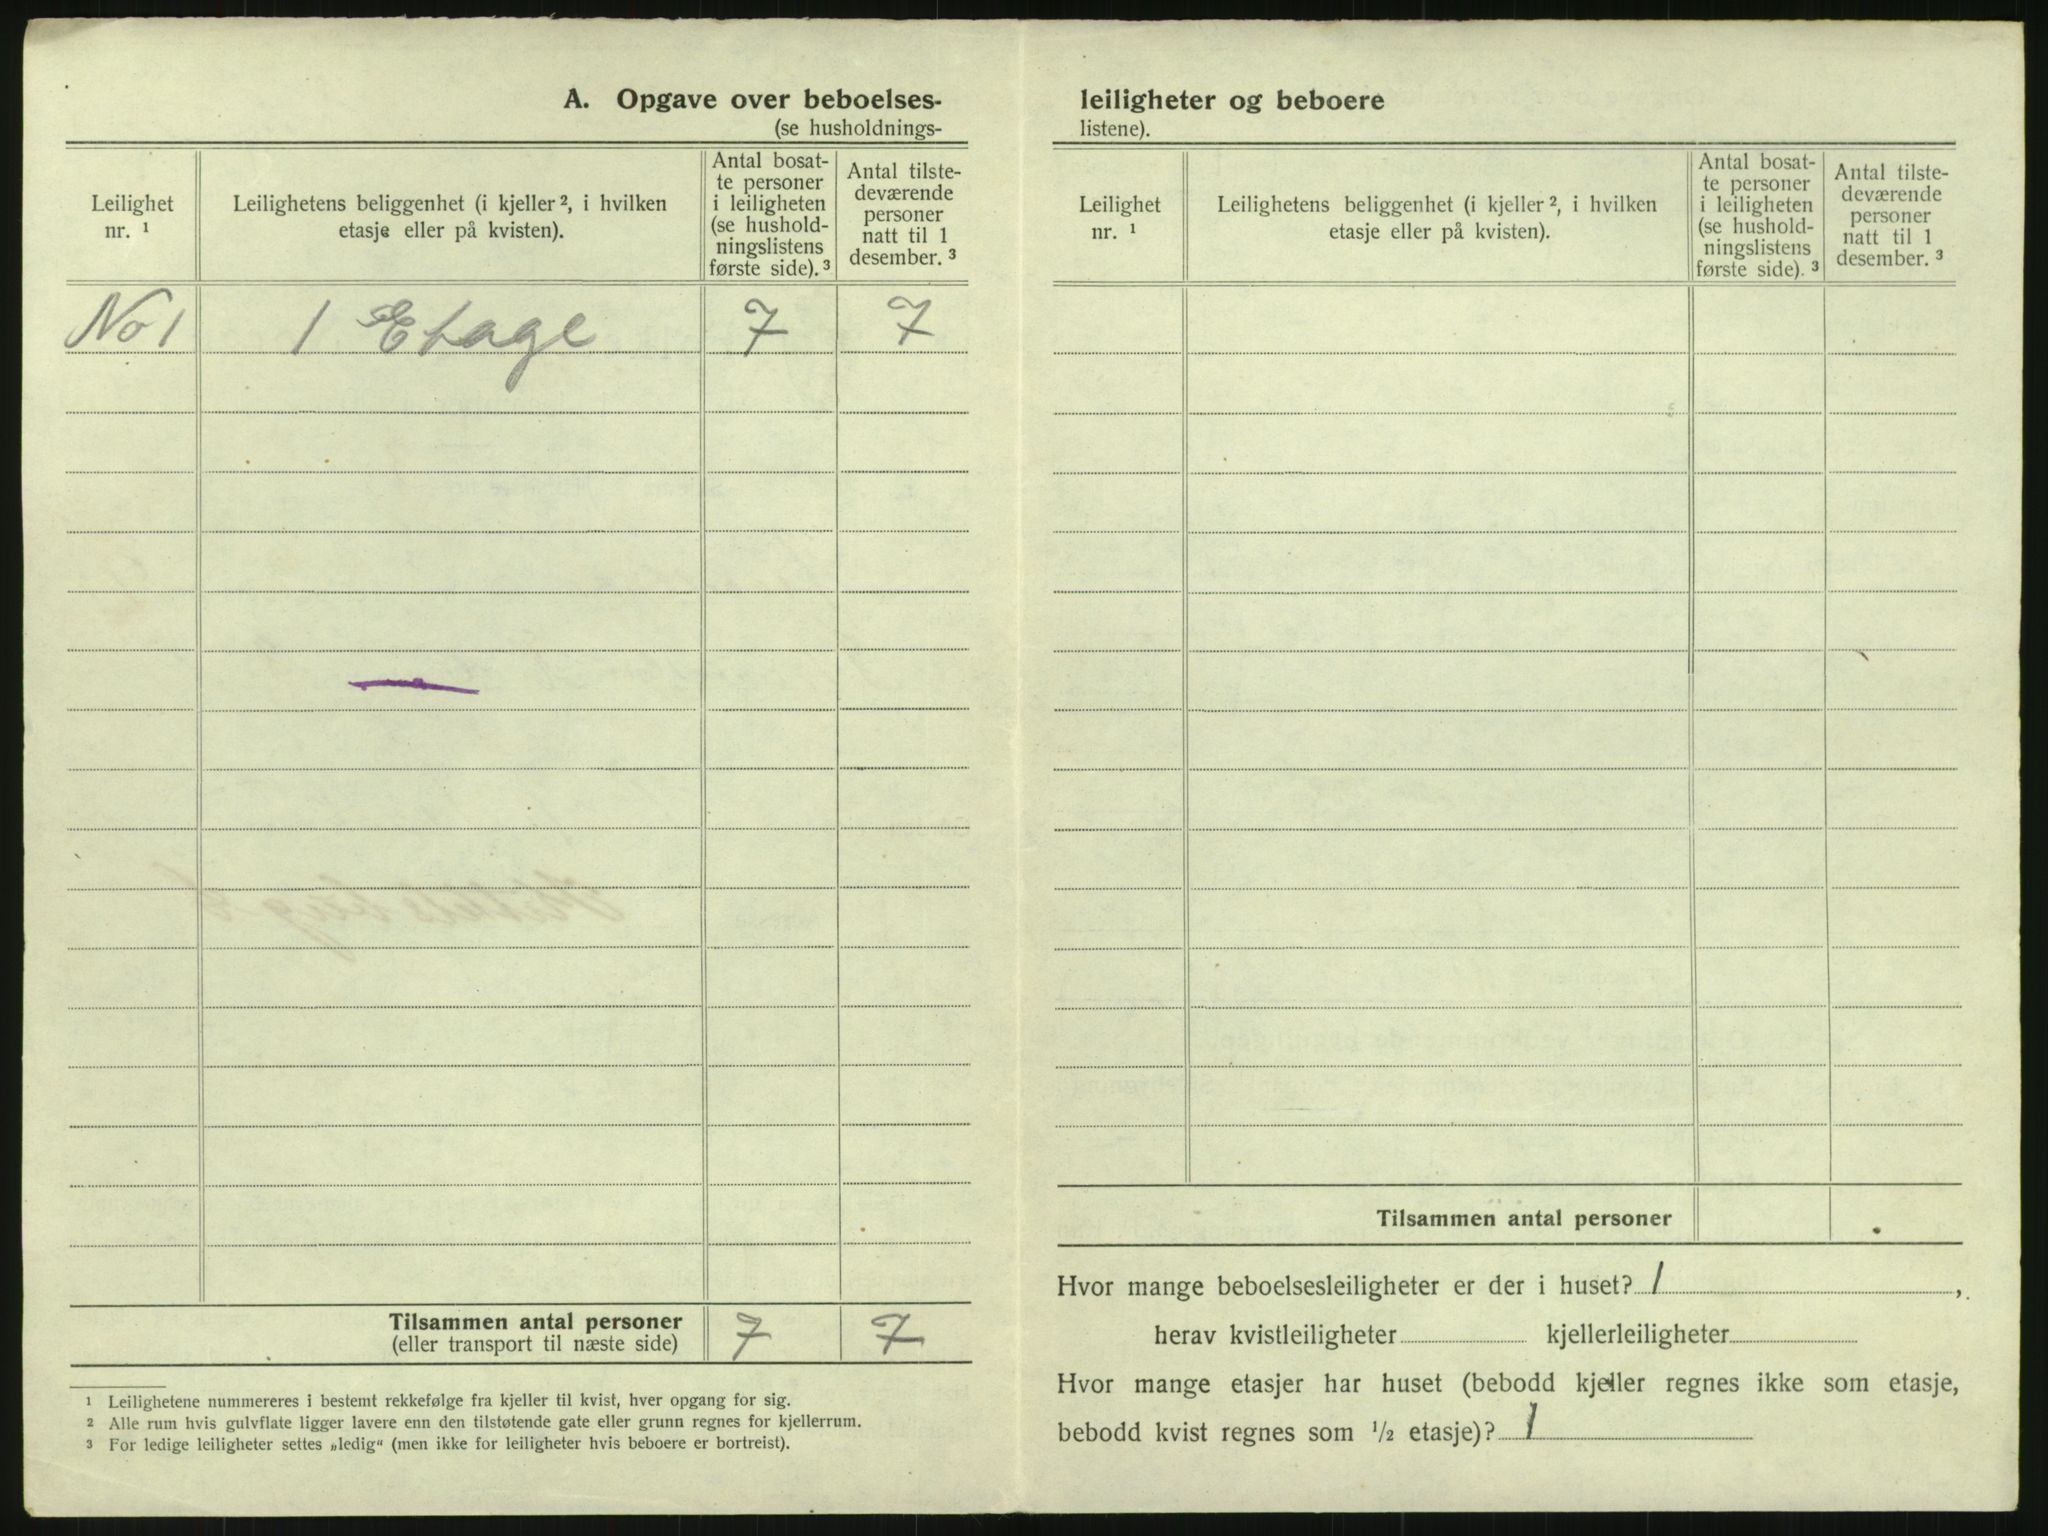 A. Opgave over beboelses-
(se husholdnings-
Leilighet nr. ¹
Leilighetens beliggenhet (i kjeller ², i hvilken etasje eller på kvisten).
Antal bosat-
te personer
i leiligheten
(se hushold-
ningslistens
første side). ³
Antal tilste-
deværende
personer
natt til 1
desember. ³
No 1 1 Etage 7 7
Tilsammen antal personer 7 7
(eller transport til næste side)
¹ Leilighetene nummereres i bestemt rekkefølge fra kjeller til kvist, hver opgang for sig.
² Alle rum hvis gulvflate ligger lavere enn den tilstøtende gate eller grunn regnes for kjellerrum.
³ For ledige leiligheter settes „ledig“ (men ikke for leiligheter hvis beboere er bortreist).
leiligheter og beboere
listene).
Leilighet nr. ¹
Leilighetens beliggenhet (i kjeller ², i hvilken etasje eller på kvisten).
Antal bosat-
te personer
i leiligheten
(se hushold-
ningslistens
første side). ³
Antal tilste-
deværende
personer
natt til 1
desember. ³
Tilsammen antal personer
Hvor mange beboelsesleiligheter er der i huset? 1,
herav kvistleiligheter kjellerleiligheter
Hvor mange etasjer har huset (bebodd kjeller regnes ikke som etasje,
bebodd kvist regnes som ½ etasje)? 1